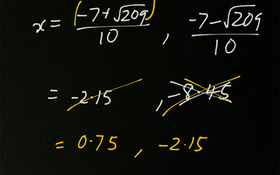 x = (-7+√209)/10 , -7-√209/10
= -2.15 , -8.45
= 0.75 , -2.15